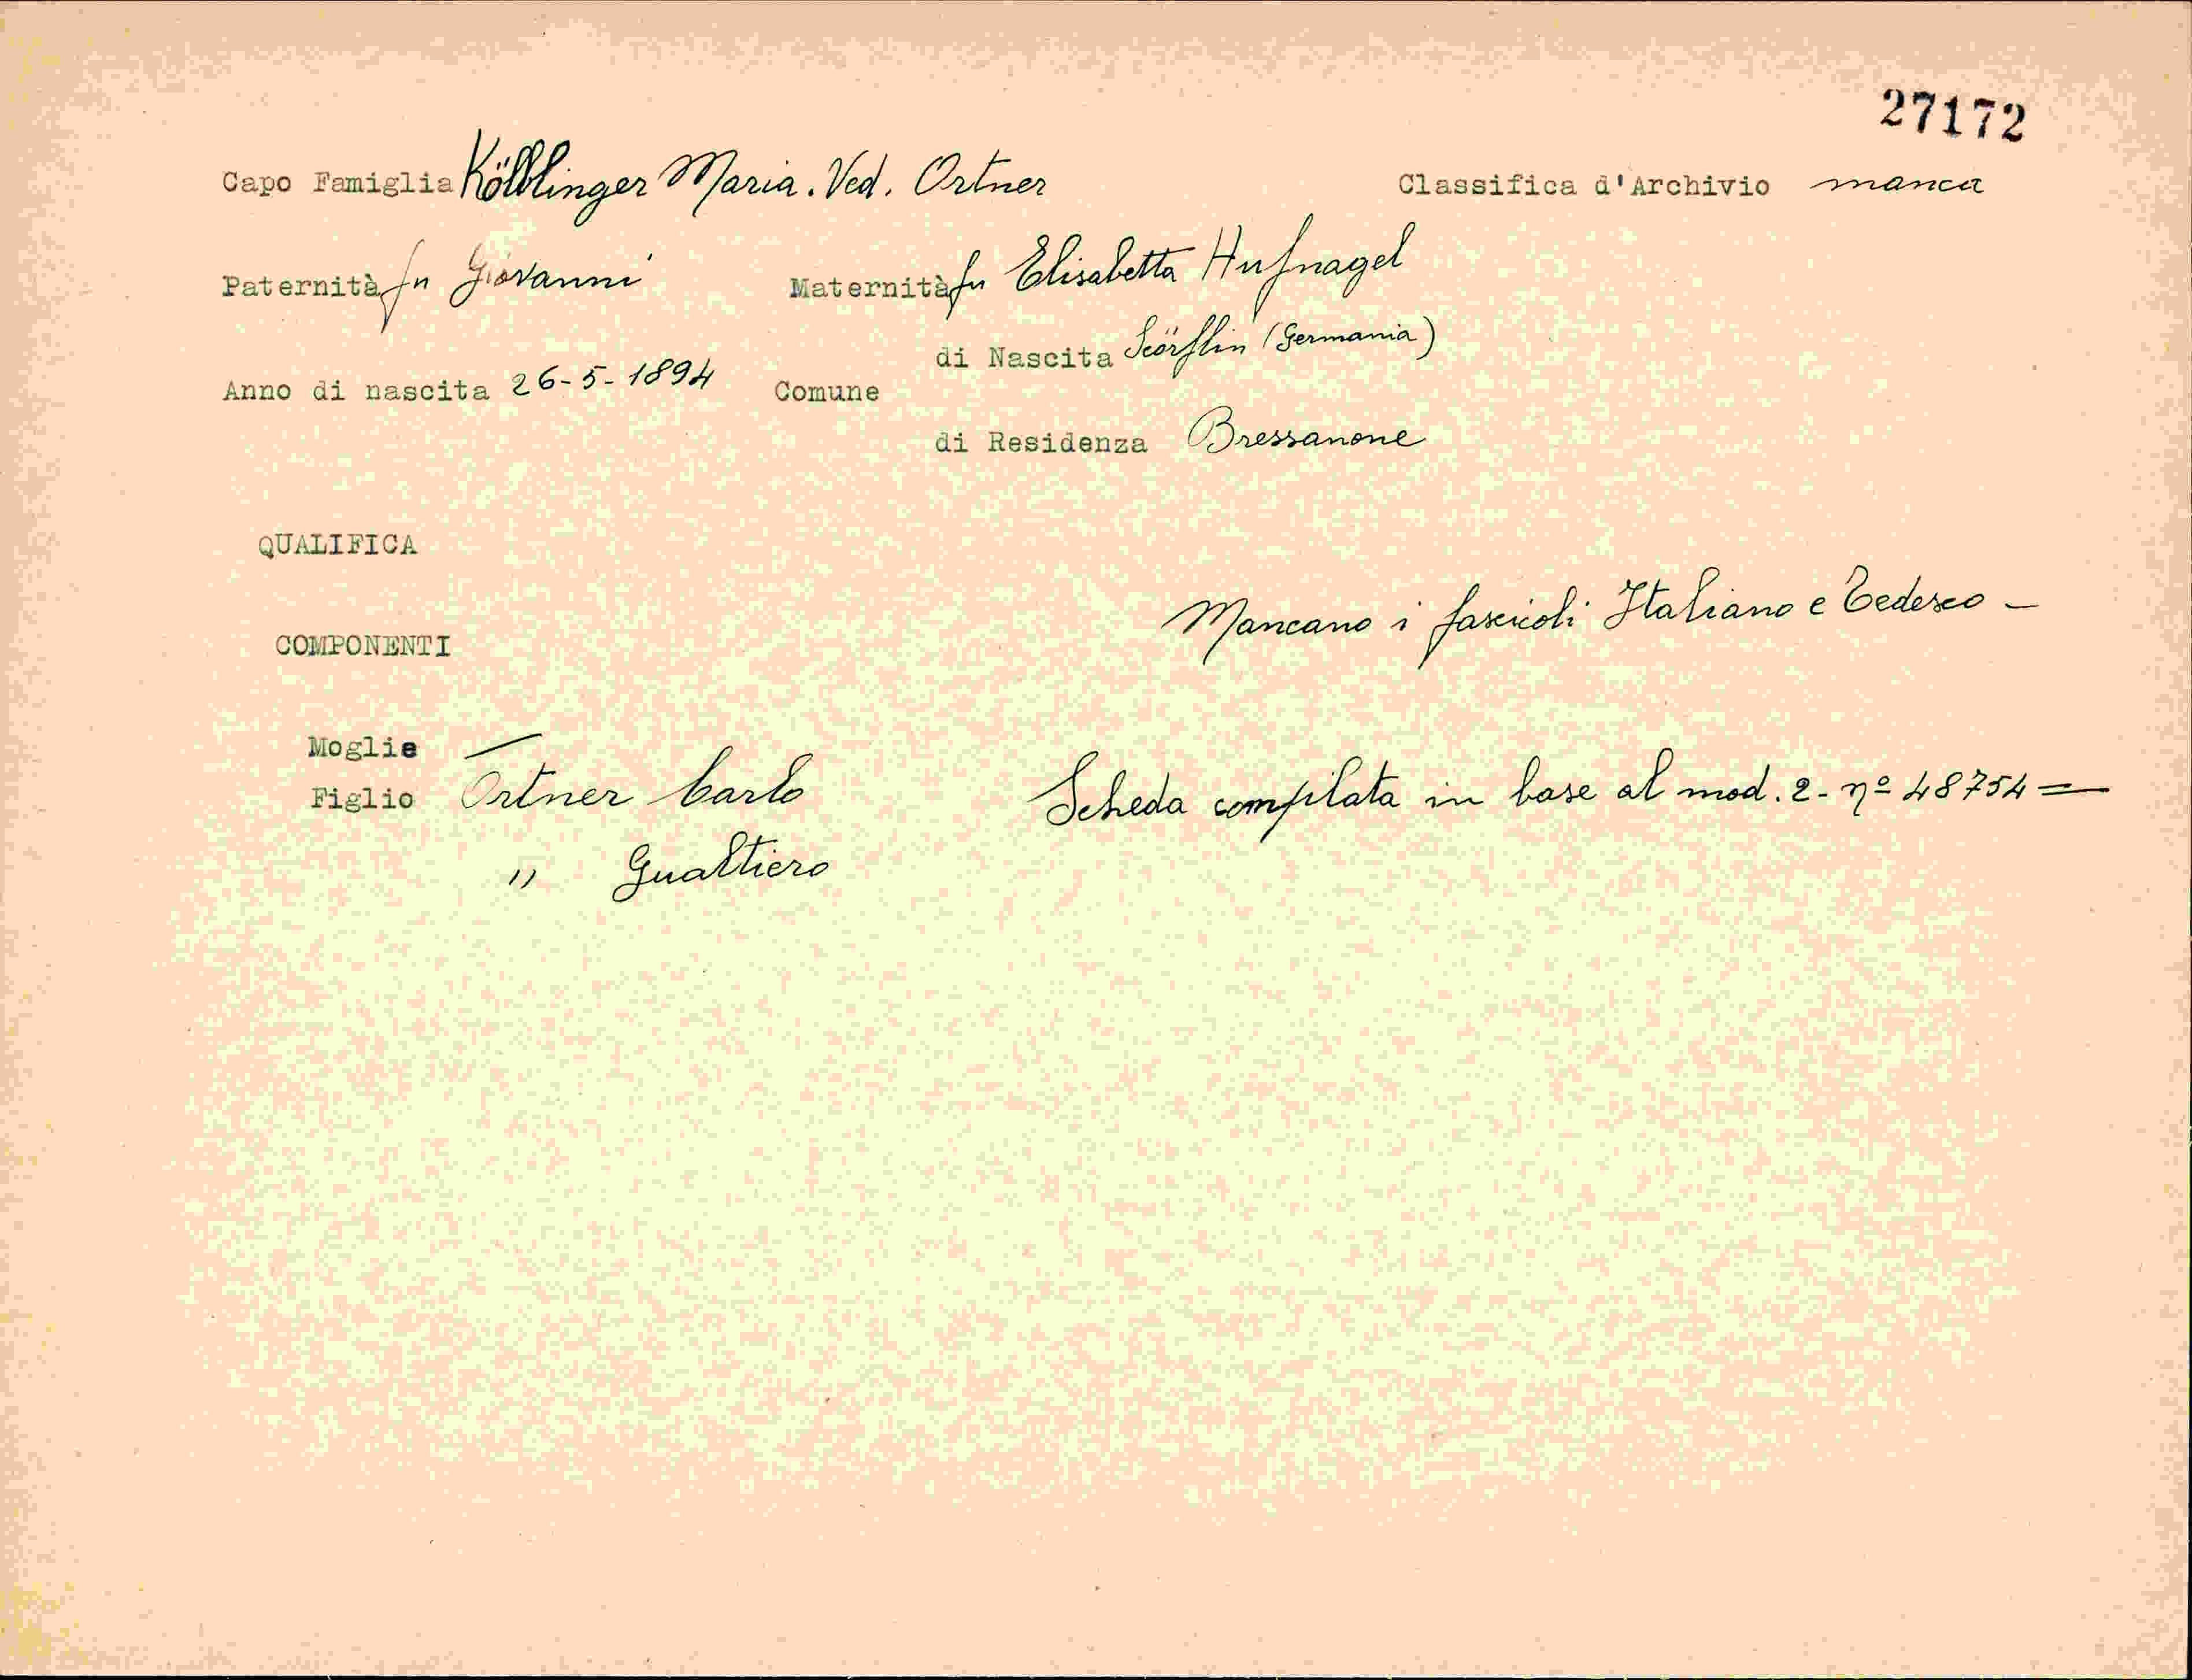 27172
Capo Famiglia Kölblinger Maria. Ved. Ortner
Classifica d'Archivio manca
Paternità fu Giovanni
Maternità fu Elisabetta Hufnagel
Anno di nascita 26-5-1894
Comune
di Nascita Scörflin (Germania)
di Residenza Bressanone
QUALIFICA
Mancano i fascicoli Italiano e Tedesco -
COMPONENTI
Moglie —
Figlio Ortner Carlo
Scheda compilata in base al mod. 2 - nº 48754 =
" Gualtiero